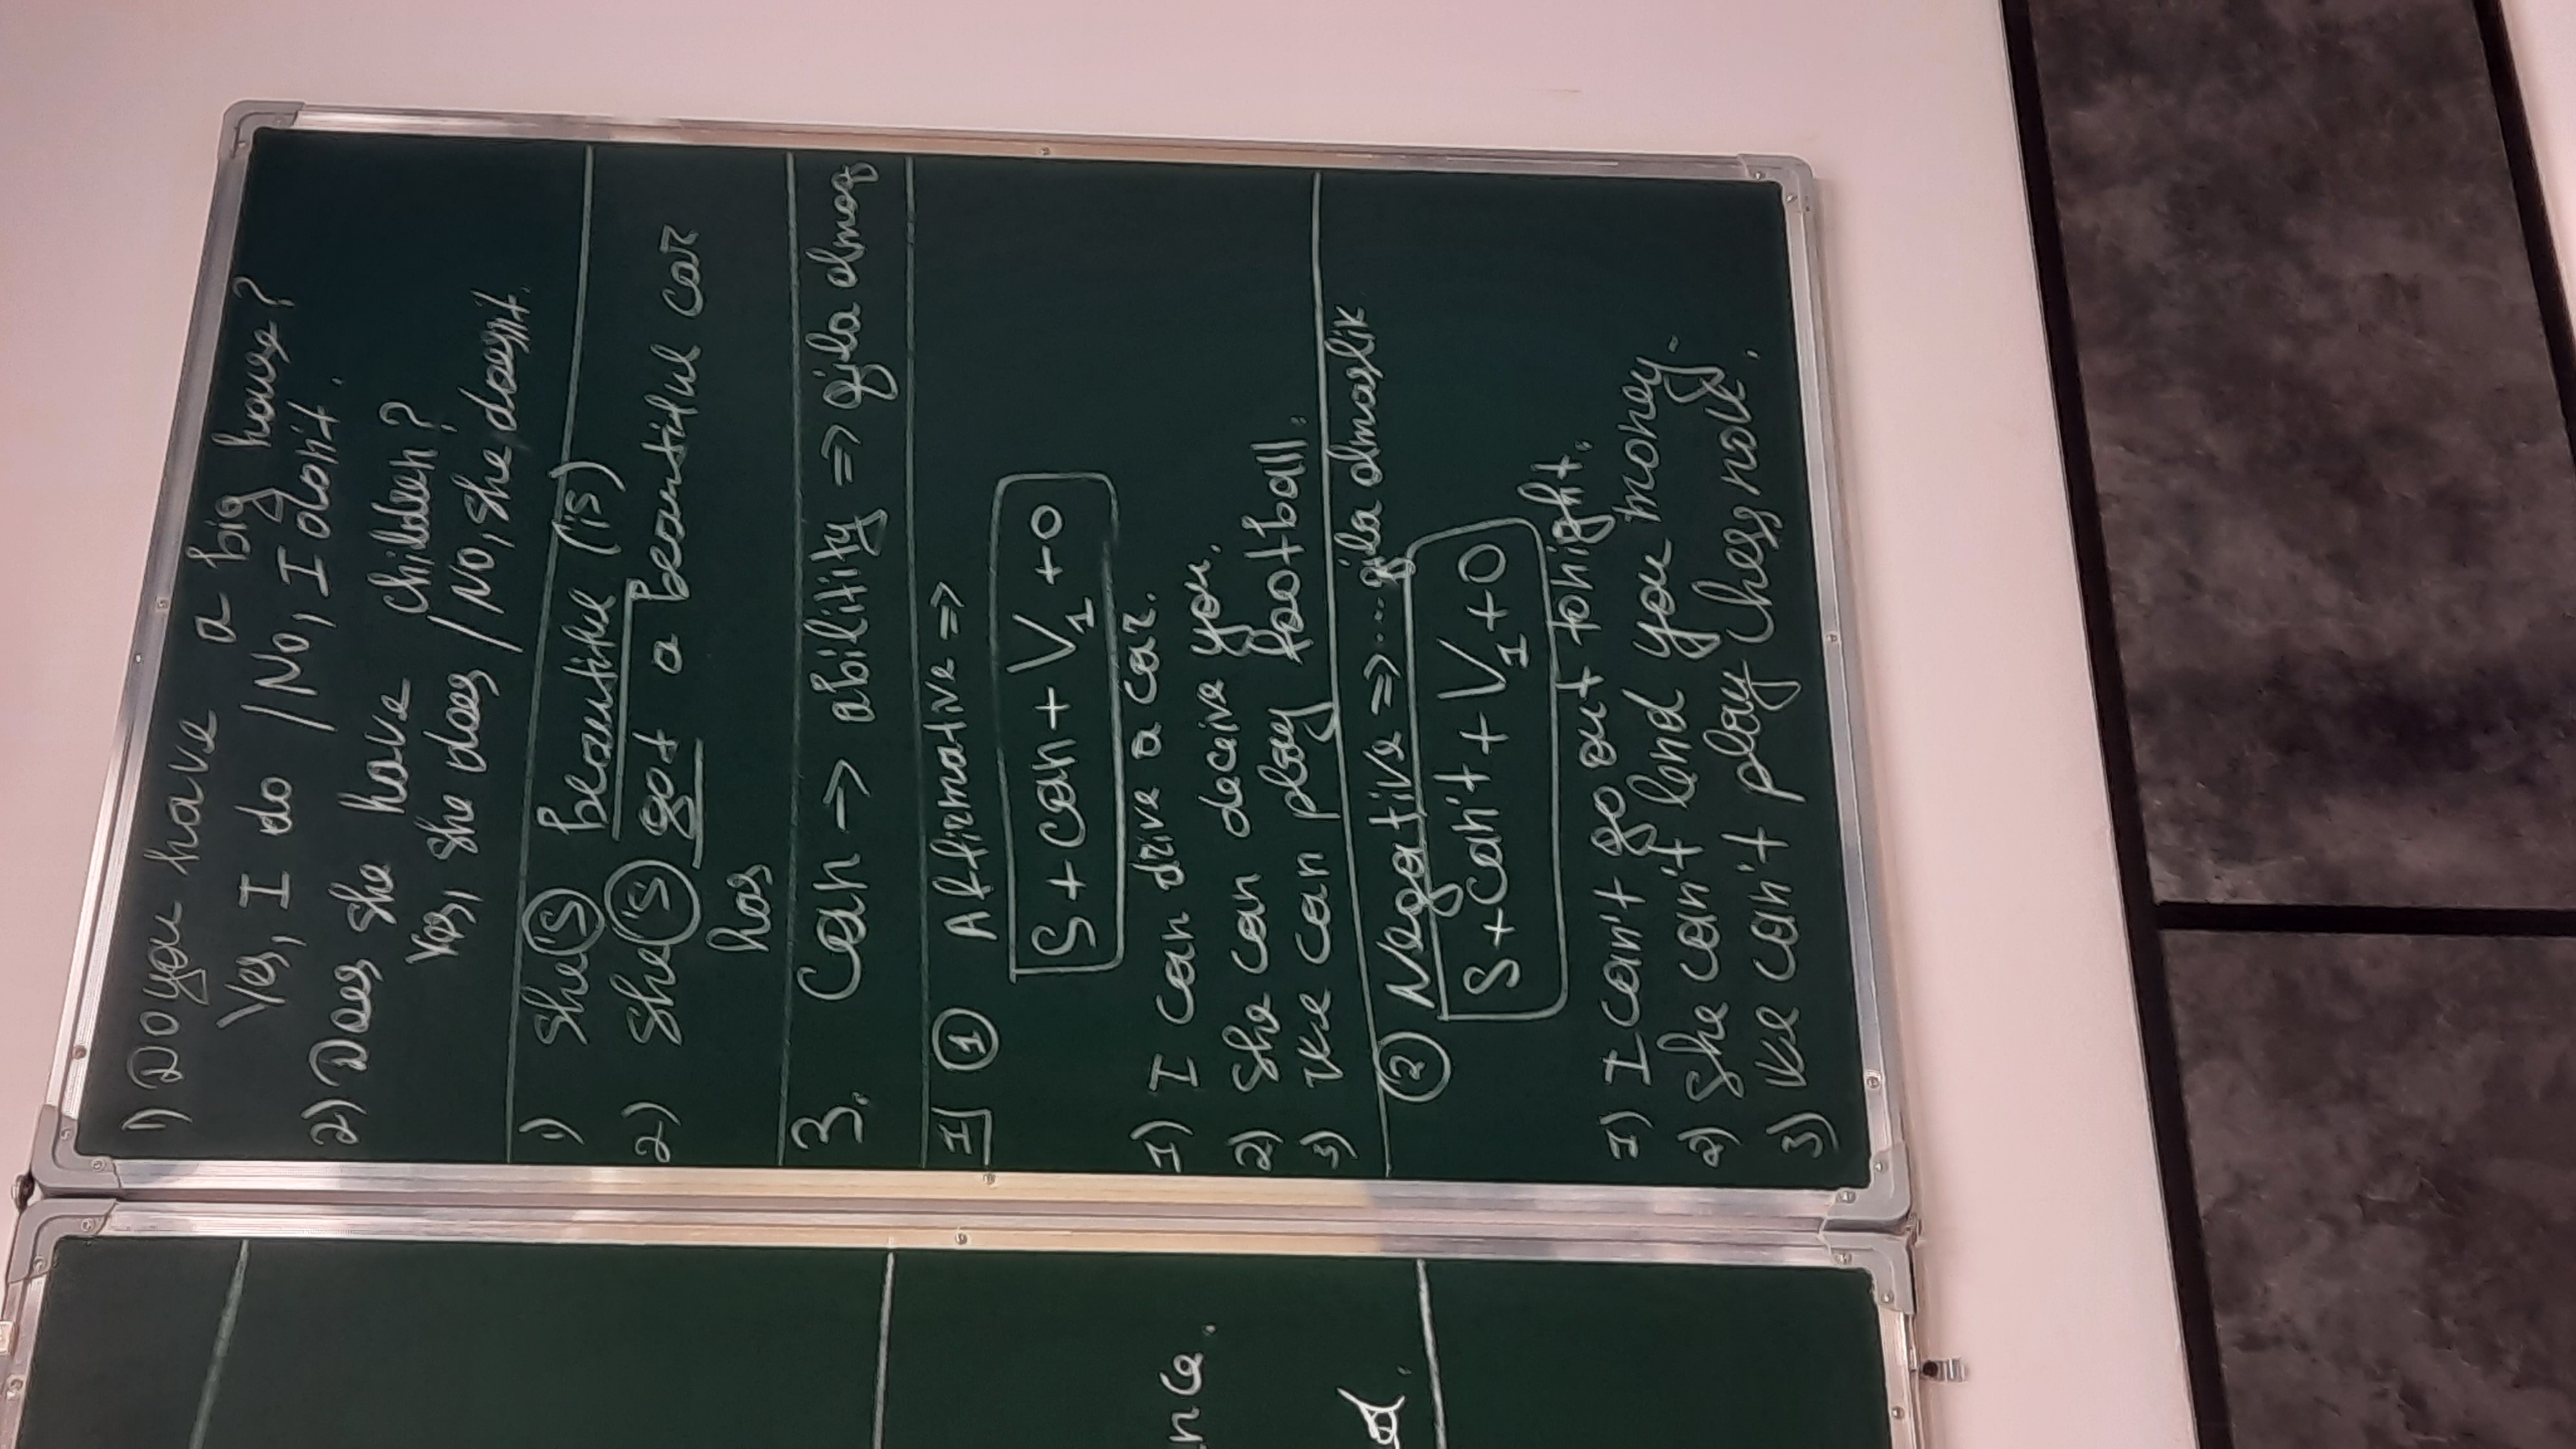 nce.
d.
1) Do you have a big house?
Yes, I do / No, I don't.
2) Does she have children?
Yes, she does / No, she doesn't.
1) she's beautiful (is)
2) she's got a beautiful car
has
3. Can -> abilitity => qila olmoq
I) 1 Affirmative =>
S + can + V1 + O
1) I can drive a car.
2) She can deceive you.
3) We can play football.
2 Negative => ... qila olmaslik
S + can't + V1 + O
1) I can't go out tonight.
2) She can't lend you money.
3) We can't play chess now.